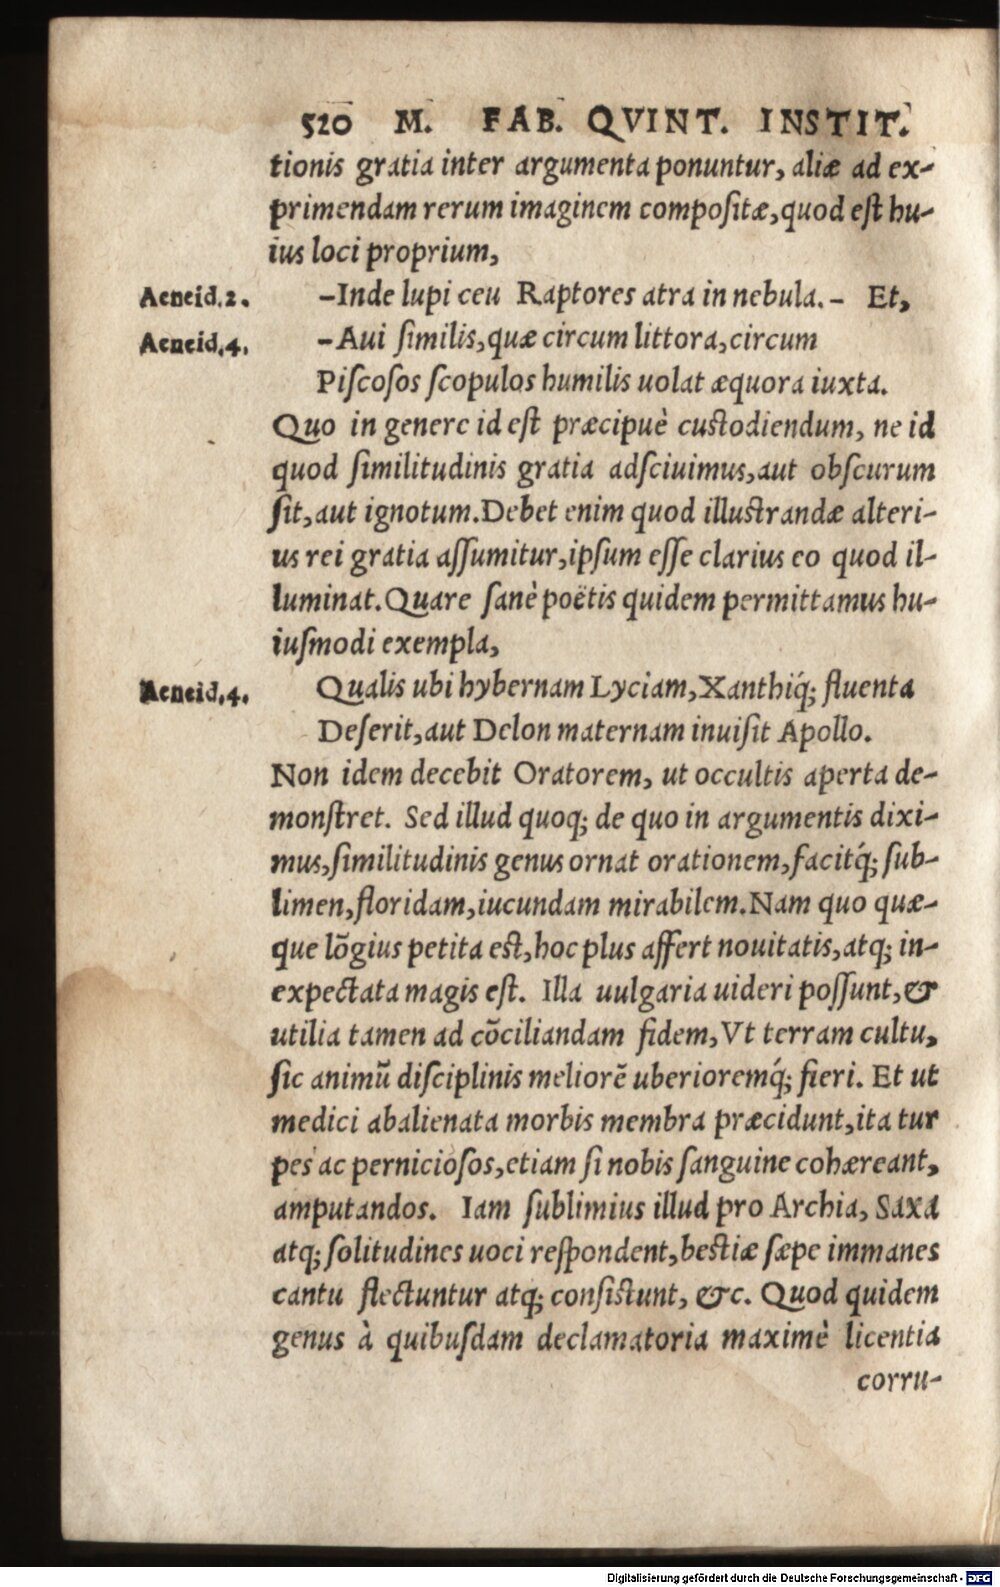 520 M. FAB. QVINT. INSTIT.
tionis gratia inter argumenta ponuntur, aliæ ad ex-
primendam rerum imaginem compoſitæ, quod eſt hu-
ius loci proprium,
Aeneid.2. -Inde lupi ceu Raptores atra in nebula.- Et,
Aeneid.4. -Aui ſimilis, quæ circum littora, circum
Piſcoſos ſcopulos humilis uolat æquora iuxta.
Quo in genere id eſt præcipuè cuſtodiendum, ne id
quod ſimilitudinis gratia adſciuimus, aut obſcurum
ſit, aut ignotum. Debet enim quod illuſtrandæ alteri-
us rei gratia aſſumitur, ipſum eſſe clarius eo quod il-
luminat. Quare ſanè poëtis quidem permittamus hu-
iuſmodi exempla,
Aeneid.4. Qualis ubi hybernam Lyciam, Xanthiq́; fluenta
Deſerit, aut Delon maternam inuiſit Apollo.
Non idem decebit Oratorem, ut occultis aperta de-
monſtret. Sed illud quoq; de quo in argumentis dixi-
mus, ſimilitudinis genus ornat orationem, facitq́; ſub-
limen, floridam, iucundam mirabilem. Nam quo quæ-
que lõgius petita eſt, hoc plus affert nouitatis, atq; in-
expectata magis eſt. Illa uulgaria uideri poſſunt, &
utilia tamen ad cõciliandam fidem, Vt terram cultu,
ſic animũ diſciplinis meliorẽ uberioremq́; fieri. Et ut
medici abalienata morbis membra præcidunt, ita tur
pes ac pernicioſos, etiam ſi nobis ſanguine cohæreant,
amputandos. Iam ſublimius illud pro Archia, Saxa
atq; ſolitudines uoci reſpondent, beſtiæ ſæpe immanes
cantu flectuntur atq; conſiſtunt, &c. Quod quidem
genus à quibuſdam declamatoria maximè licentia
corru-
Digitalisierung gefördert durch die Deutsche Forschungsgemeinschaft - DFG